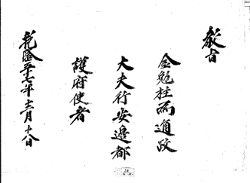 教旨
金勉柱爲通政
大夫行安邊都
護府使者
乾隆五十七年十二月十八日